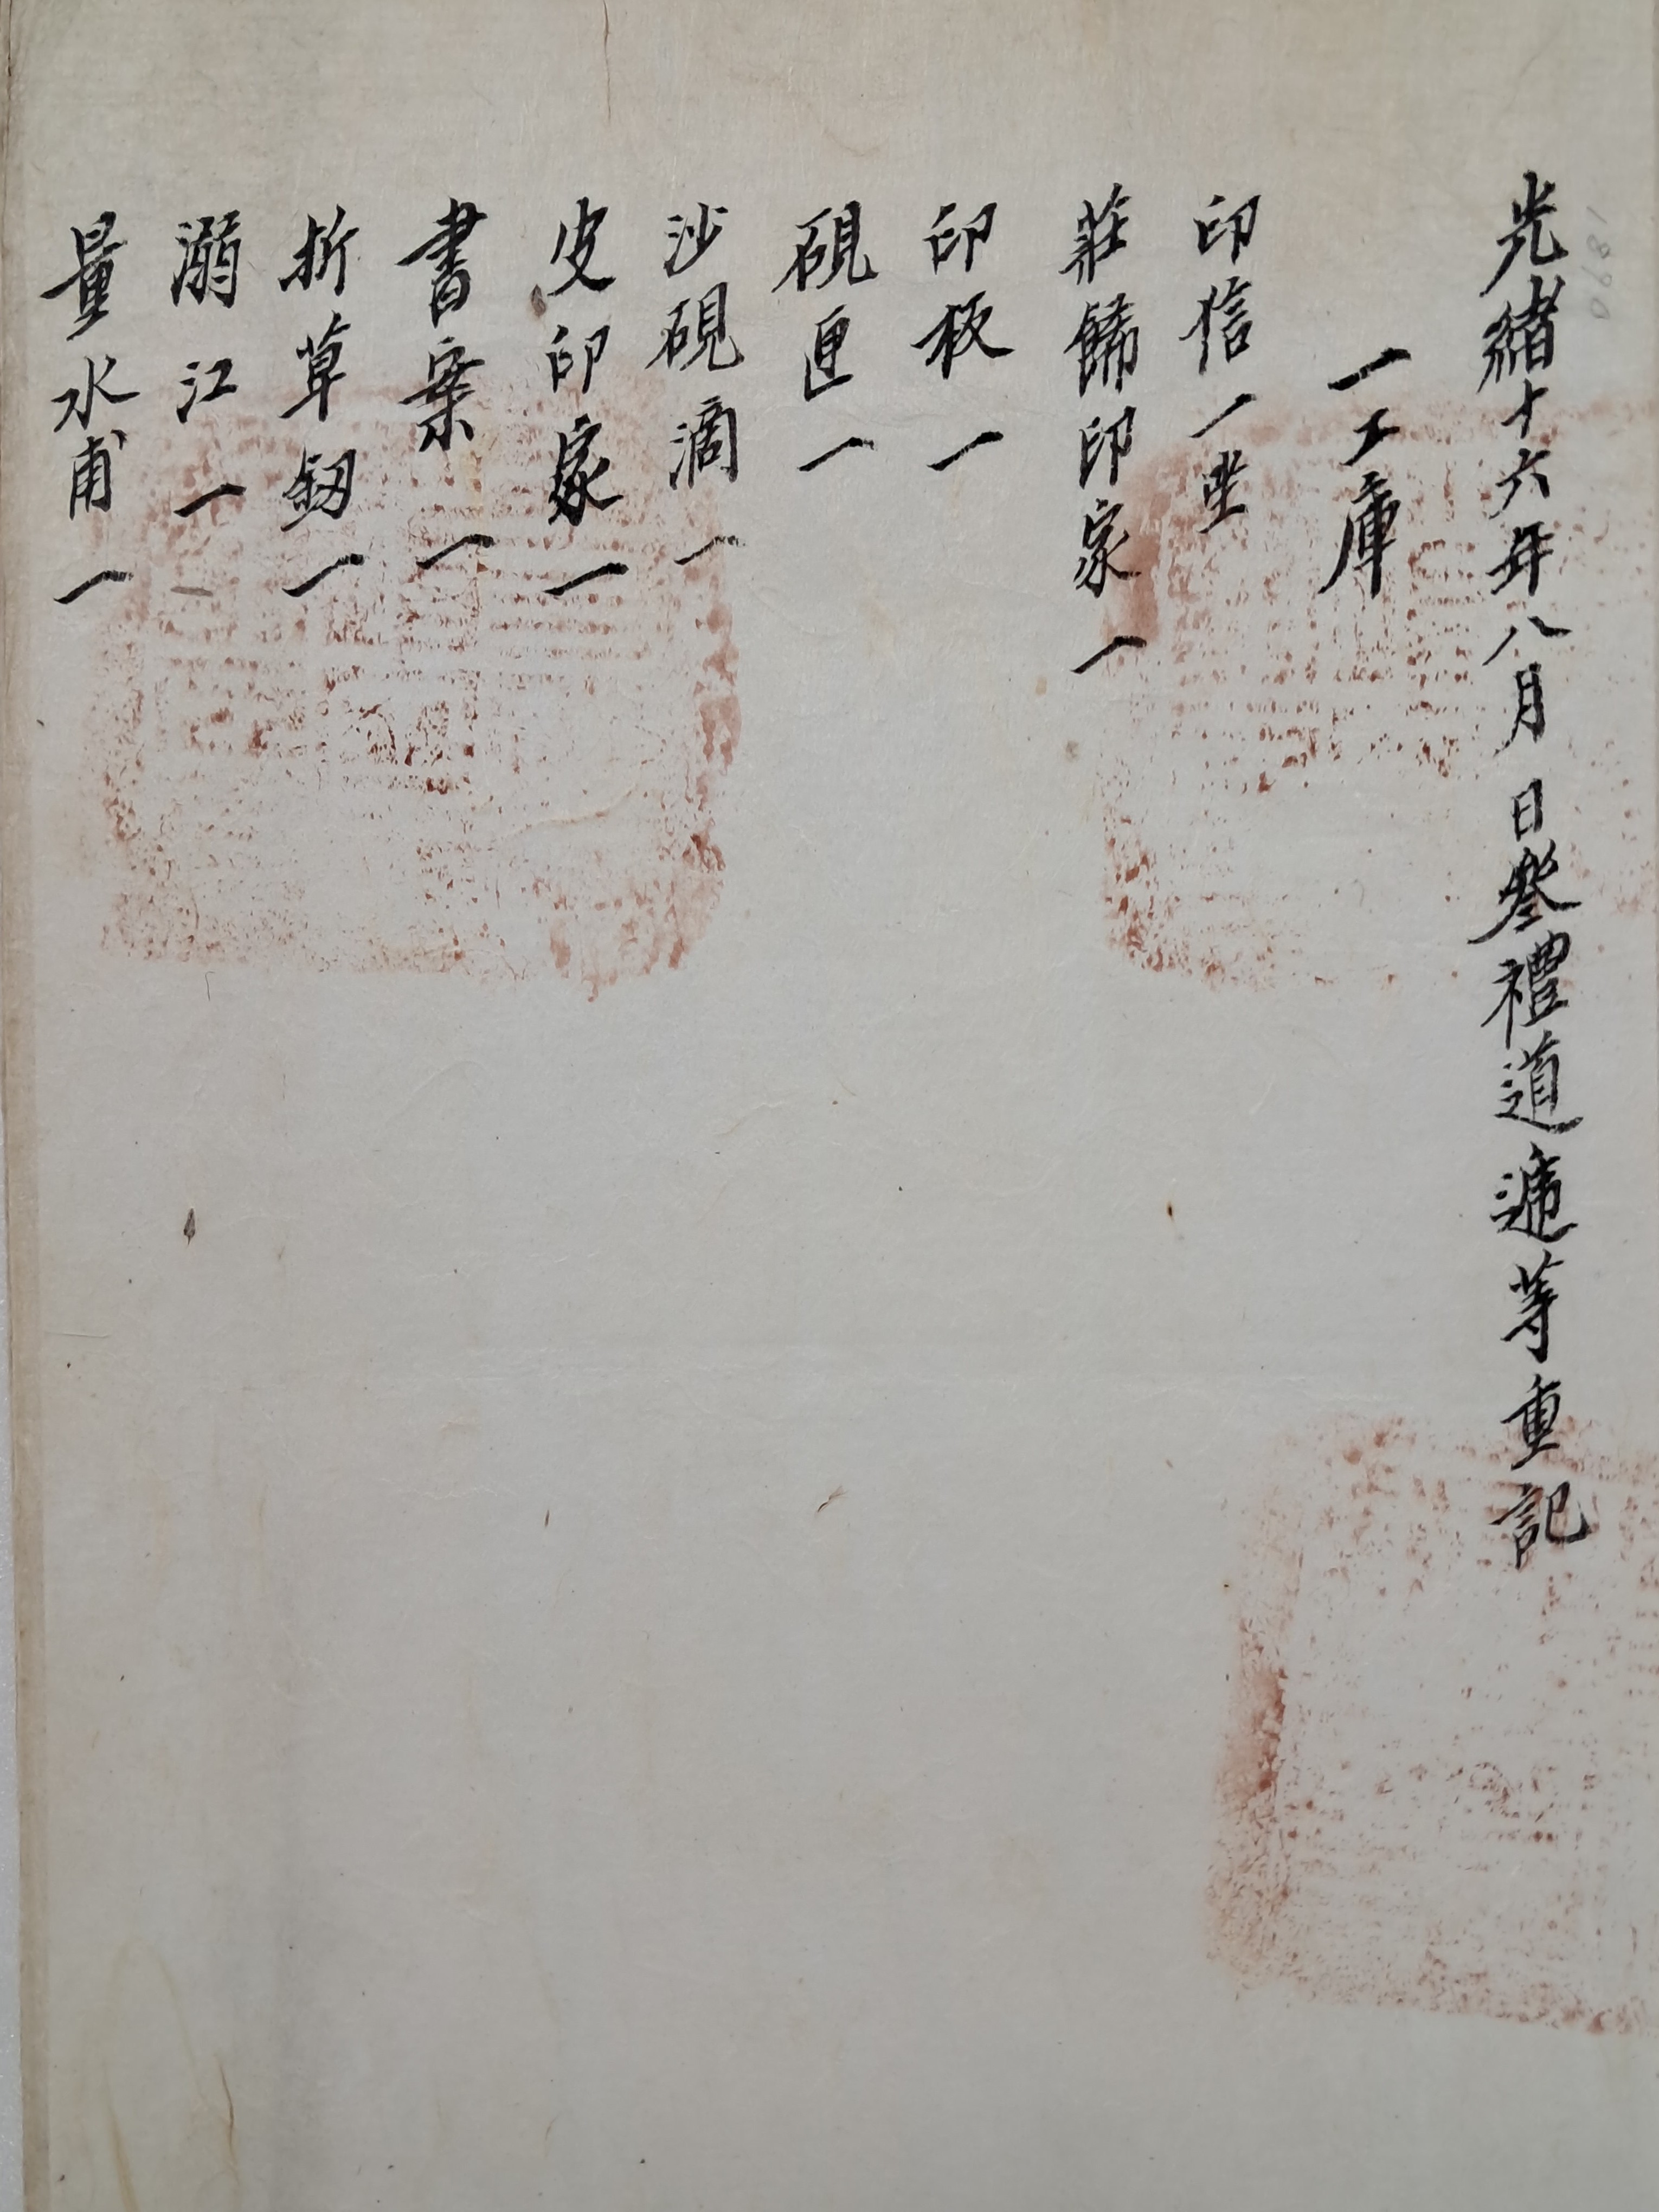 光緒十六年八月 日參禮道遞等重記
一工庫
印信一坐
莊餙印家一
印板一
硯匣一
沙硯滴一
皮印家一
書案一
斫草釰一
溺江一
量水甫一
1890